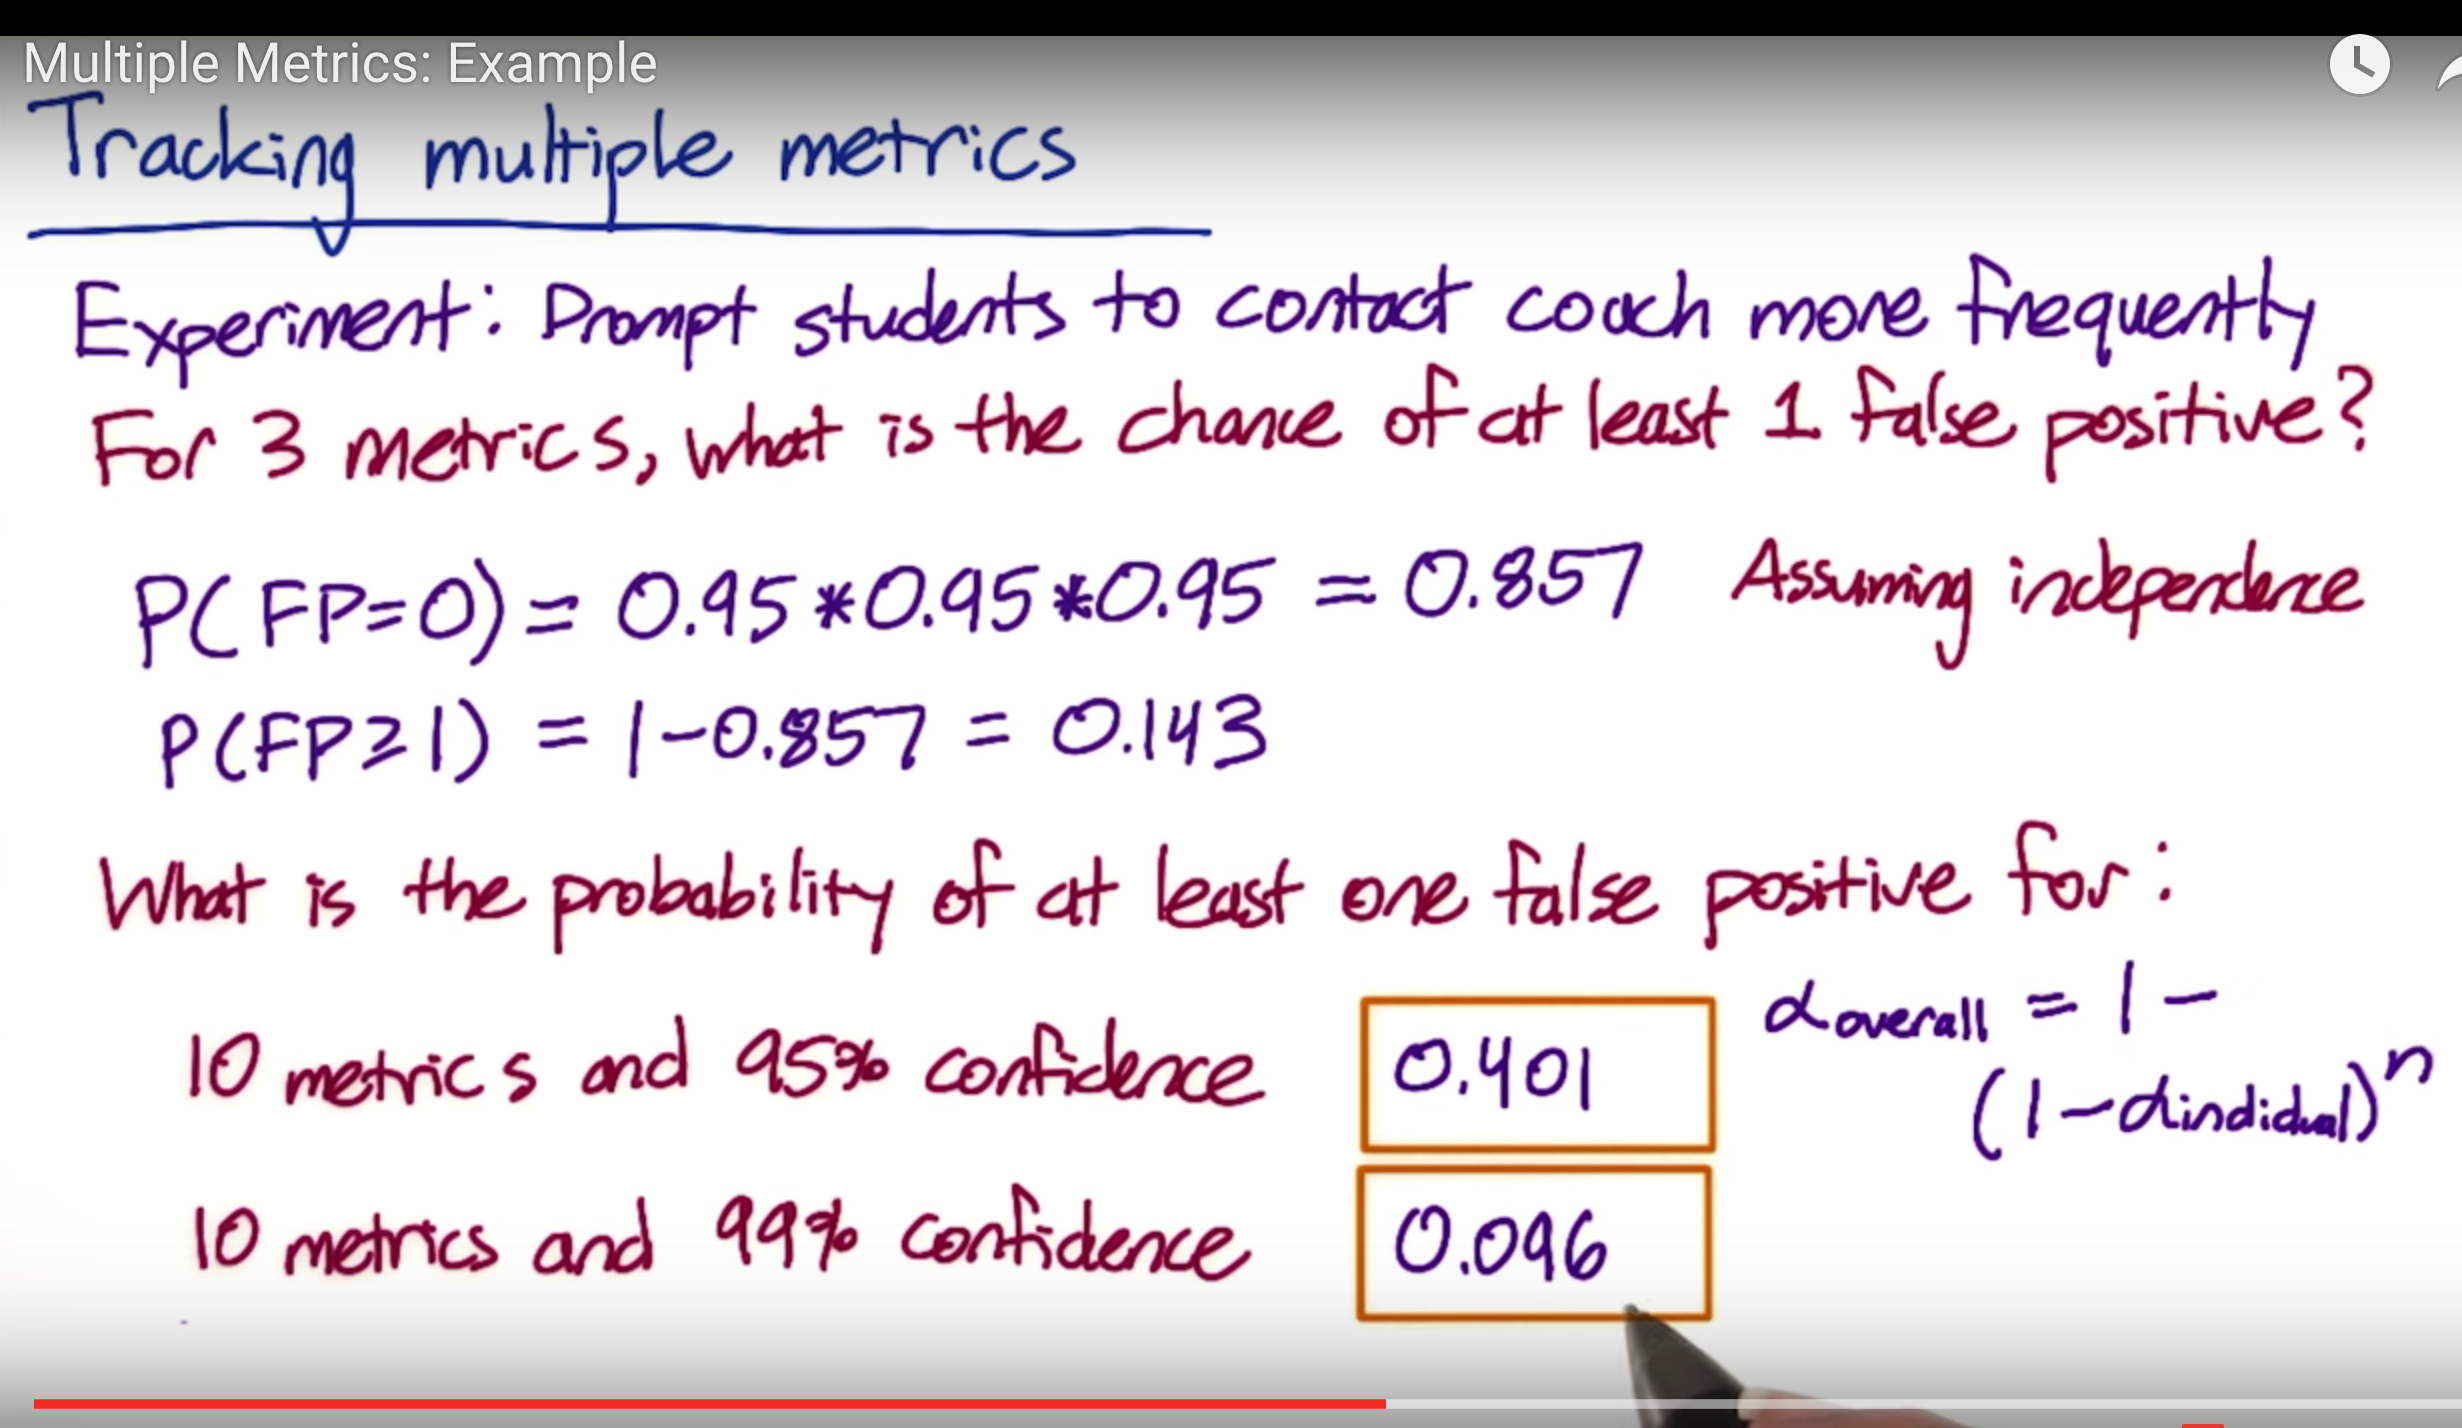 Multiple Metrics: Example
Tracking multiple metrics
Experiment: Prompt students to contact coach more frequently
For 3 metrics, what is the chance of at least 1 false positive?
P(FP=0) = 0.95 * 0.95 * 0.95 = 0.857 Assuming independence
P(FP≥1) = 1-0.857 = 0.143
What is the probability of at least one false positive for:
10 metrics and 95% confidence 0.401
α overall = 1 -
(1-α indidual)ⁿ
10 metrics and 99% confidence 0.096